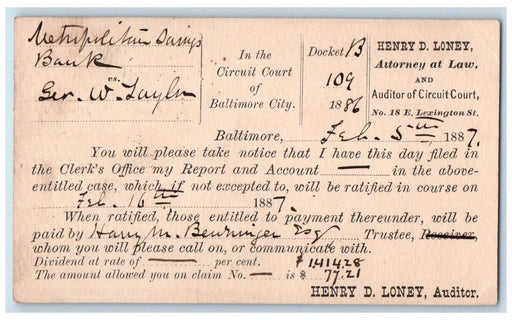 Metropolitan Savings
Bank
vs.
Geo. W. Taylor
In the
Circuit Court
of
Baltimore City.
Docket B
109
1886
HENRY D. LONEY,
Attorney at Law,
AND
Auditor of Circuit Court,
No. 18 E. Lexington St.
Baltimore, Feb. 5th 1887.
You will please take notice that I have this day filed in
the Clerk's Office my Report and Account — in the above-
entitled case, which, if not excepted to, will be ratified in course on
Feb. 16th 1887.
When ratified, those entitled to payment thereunder, will be
paid by Harry M. Esq Trustee, Receiver,
whom you will please call on, or communicate with.
Dividend at rate of — per cent. $1,414.28
The amount allowed you on claim No. — is $ 77.21
HENRY D. LONEY, Auditor.